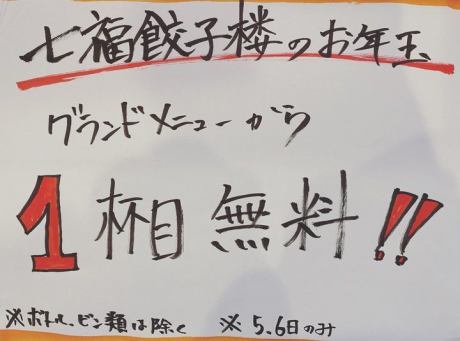 七福餃子楼のお年玉
グランドメニューから
1杯目無料!!
※ボトル、ビン類は除く ※5,6日のみ